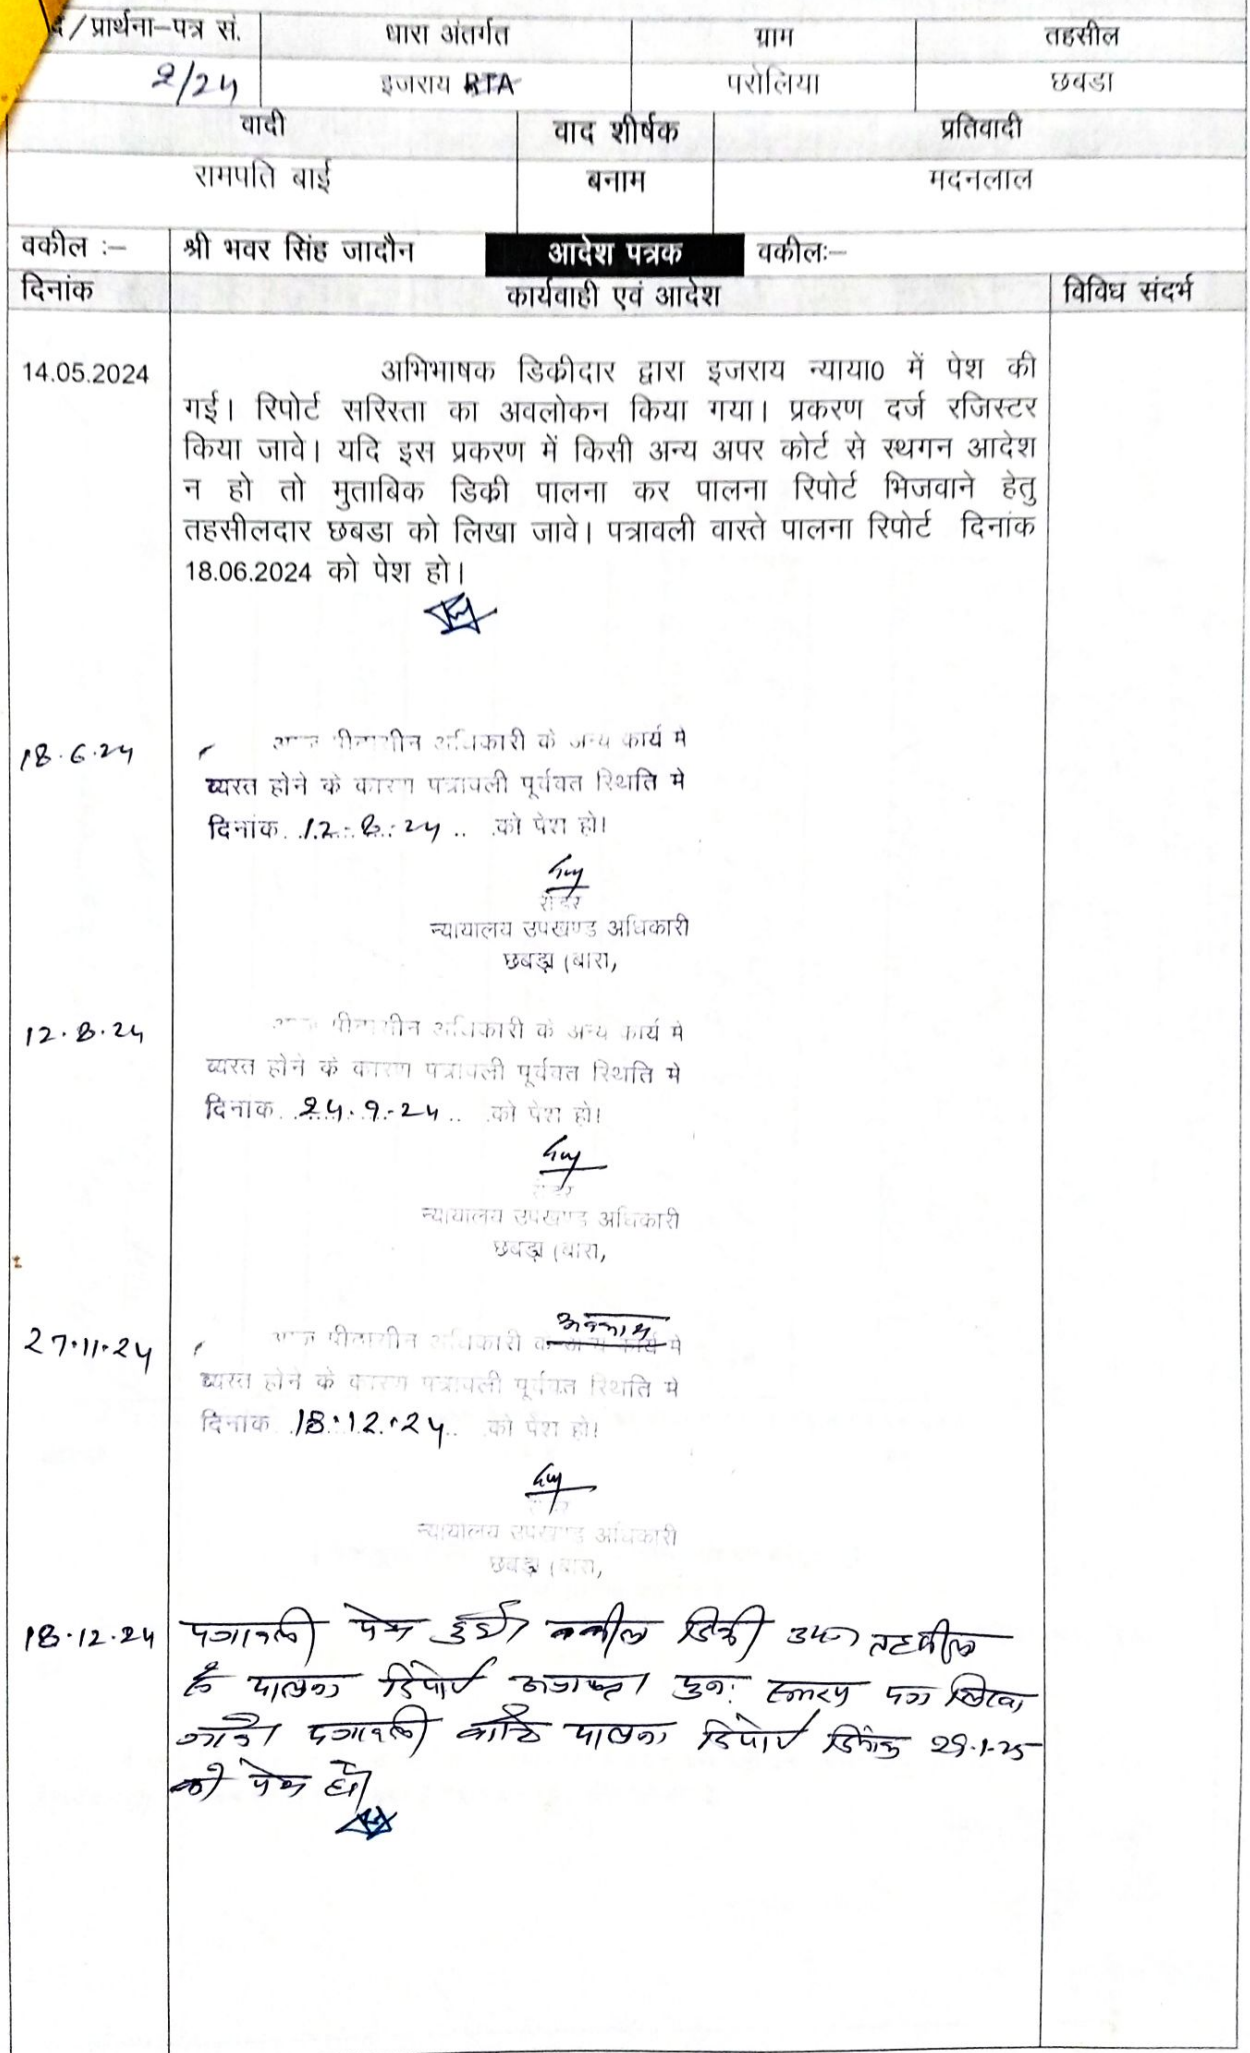 द/प्रार्थना–पत्र सं. धारा अंतर्गत ग्राम तहसील
2/24 इजराय RTA परोलिया छबडा
वादी वाद शीर्षक प्रतिवादी
रामपति बाई बनाम मदनलाल
वकील :– श्री भवर सिंह जादौन आदेश पत्रक वकीलः–
दिनांक कार्यवाही एवं आदेश विविध संदर्भ
14.05.2024 अभिभाषक डिकीदार द्वारा इजराय न्याया0 में पेश की
गई। रिपोर्ट सरिस्ता का अवलोकन किया गया। प्रकरण दर्ज रजिस्टर
किया जावे। यदि इस प्रकरण में किसी अन्य अपर कोर्ट से स्थगन आदेश
न हो तो मुताबिक डिकी पालना कर पालना रिपोर्ट भिजवाने हेतु
तहसीलदार छबडा को लिखा जावे। पत्रावली वास्ते पालना रिपोर्ट दिनांक
18.06.2024 को पेश हो।
18.6.24 आज पीठासीन अधिकारी के अन्य कार्य मे
व्यस्त होने के कारण पत्रावली पूर्ववत स्थिति मे
दिनांक. 12.8.24 .. .को पेश हो।
रीडर
न्यायालय उपखण्ड अधिकारी
छबडा (बारा,
12.8.24 आज पीठासीन अधिकारी के अन्य कार्य मे
व्यस्त होने के कारण पत्रावली पूर्ववत स्थिति मे
दिनांक. 24.9.24 .. .को पेश हो।
रीडर
न्यायालय उपखण्ड अधिकारी
छबडा (बारा,
अवकाश
27.11.24 आज पीठासीन अधिकारी के अन्य कार्य मे
व्यस्त होने के कारण पत्रावली पूर्ववत स्थिति मे
दिनांक 18.12.24.. .को पेश हो।
रीडर
न्यायालय उपखण्ड अधिकारी
छबडा (बारा,
18.12.24 पत्रावली पेश हुई। वकील डिक्री तहसील
से पालना रिपोर्ट अप्राप्त। पुनः स्मरण पत्र लिखा
जावे। पत्रावली वास्ते पालना रिपोर्ट दिनांक 29.1.25
को पेश हो।